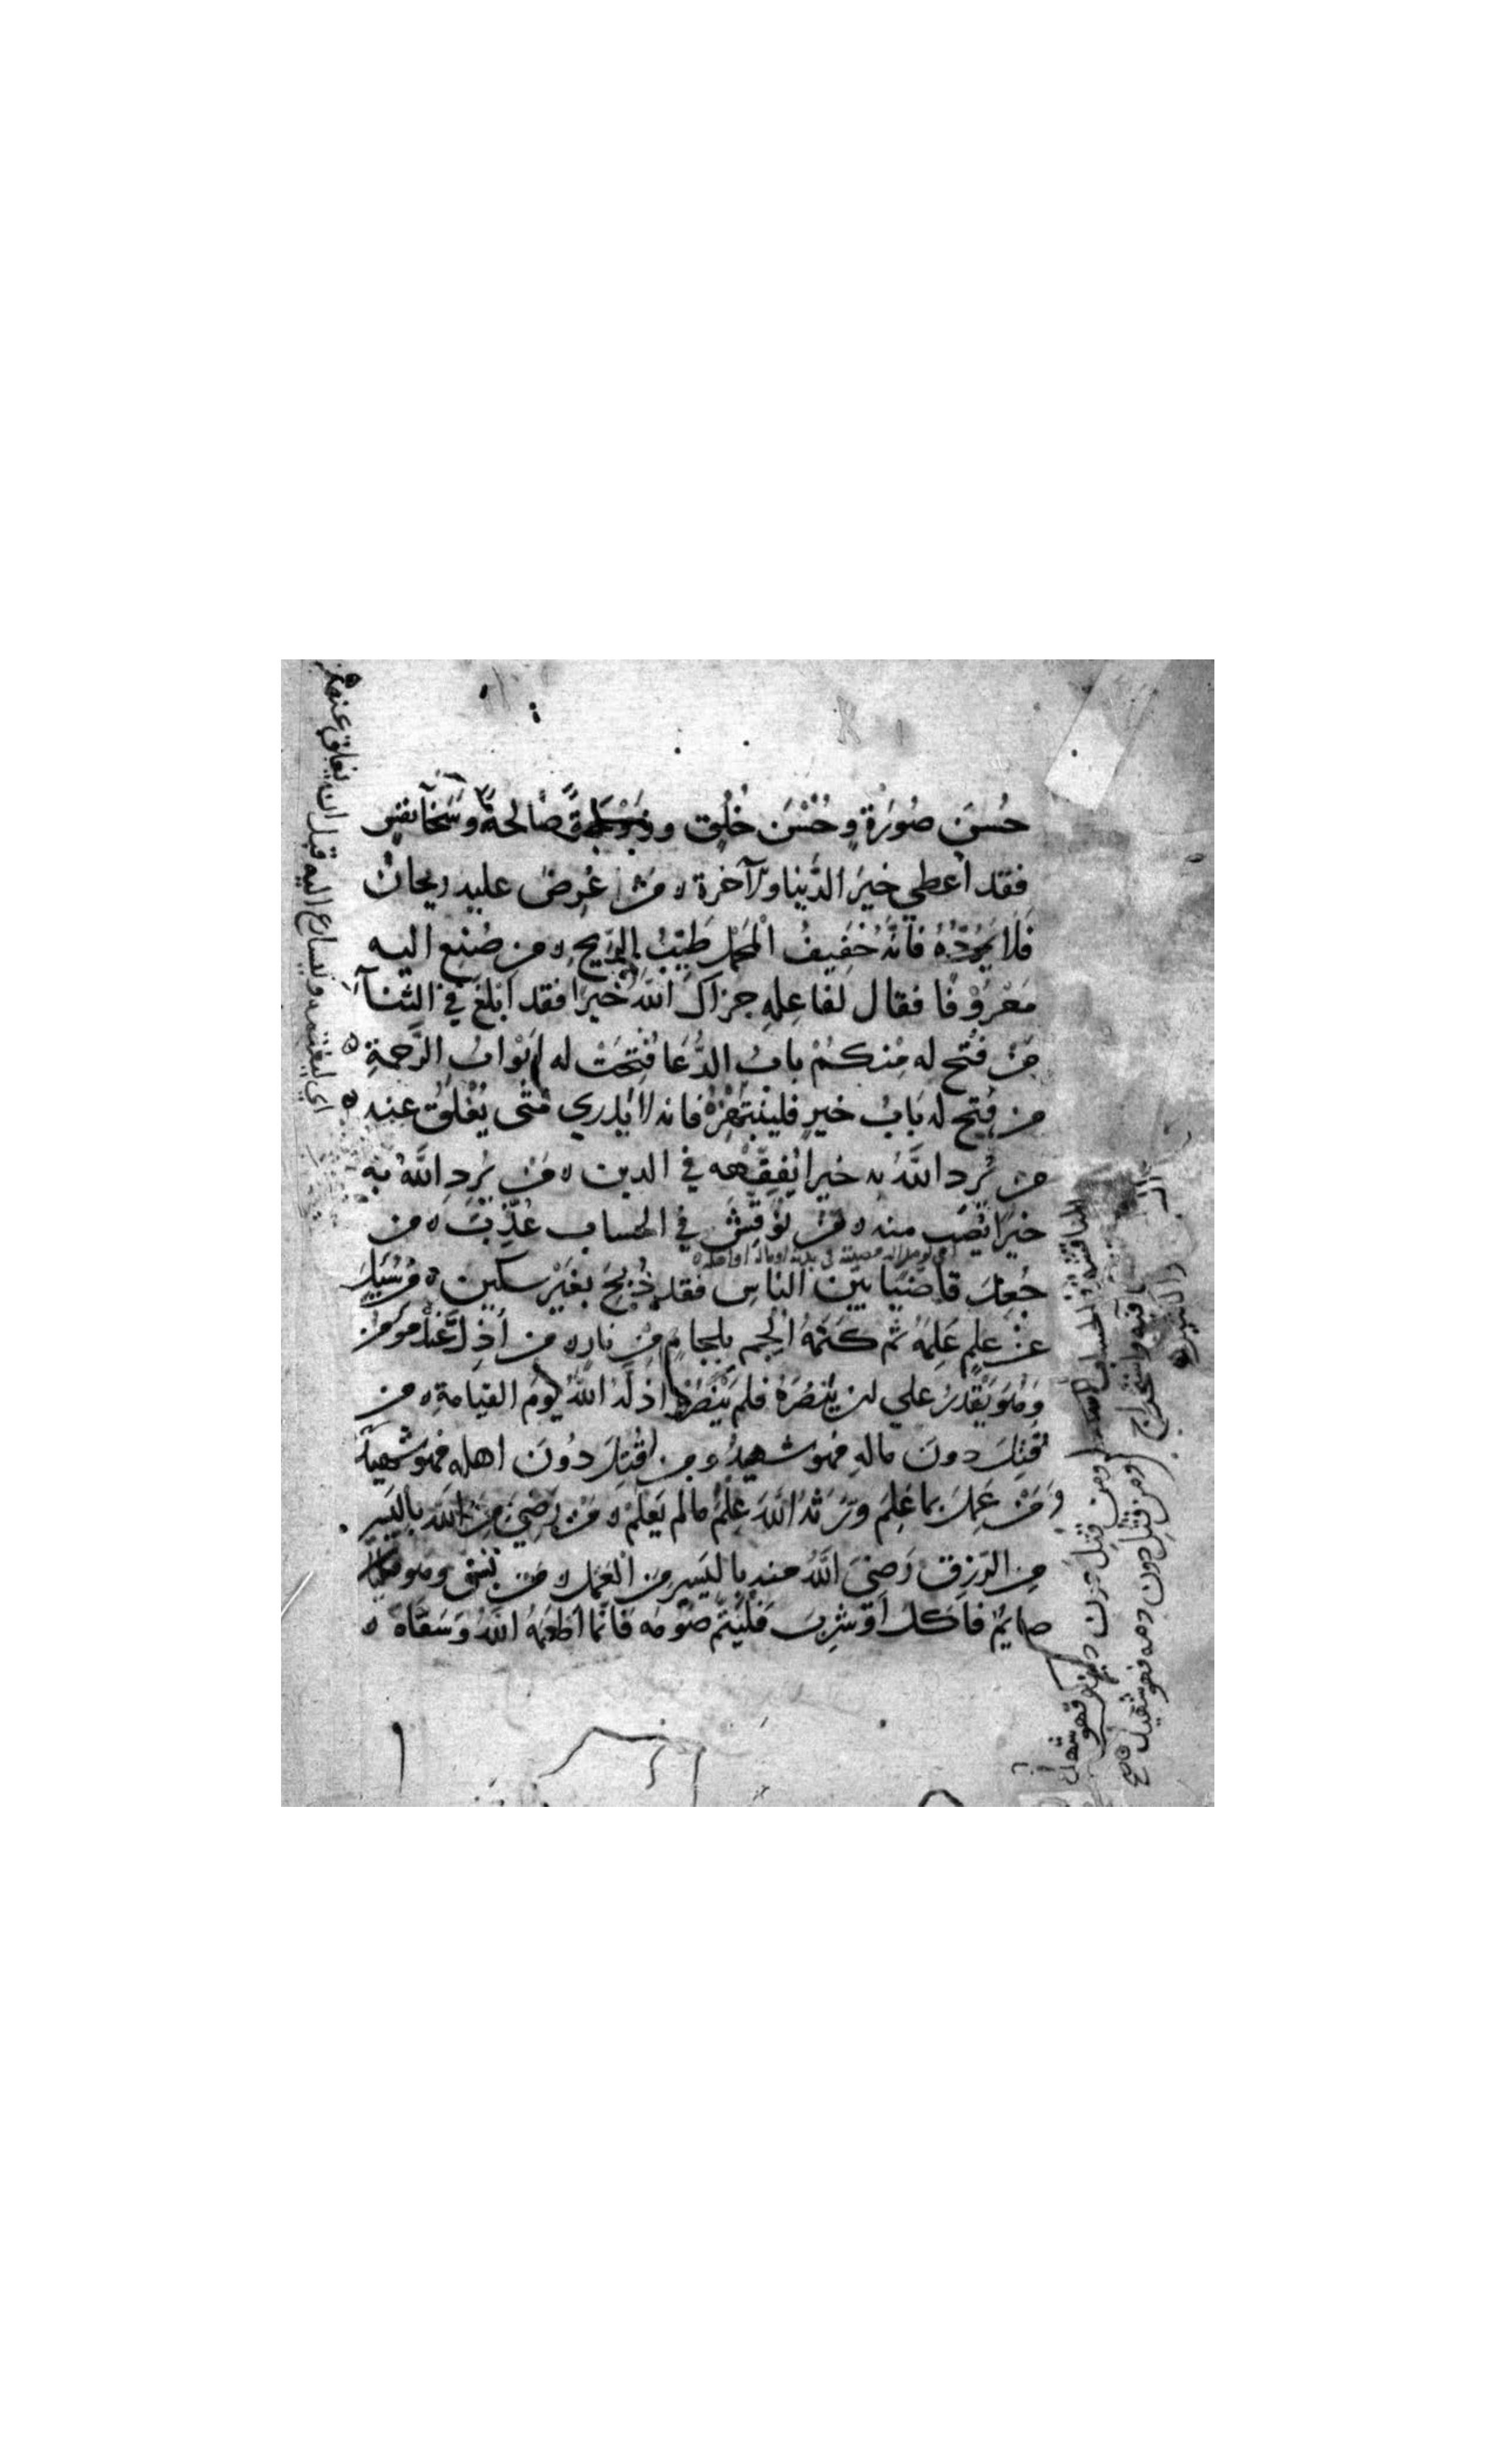 حُسنَ صُورَةٍ وحُسْنَ خُلُقٍ وزوجةً صَالحةً وسَخَآ نفسٍ
فقد أعطي خيرَ الدُّنيا والآخرة ه مَن عُرِضَ عليه ريحانٌ
فَلا يَرُدَّهُ فانَّهُ خَفيفُ الْمَحْمِل طَيّبُ الرّيحِ ه من صُنِعَ اليه
مَعْرُوْفًا فقال لفاعِلِهِ جزاكَ اللّهُ خيرًا فقد ابْلَغَ في الثّنآءِ
مَن فُتح له مِنكُمْ بابُ الدُّعَا فُتِحَتْ له أبْوابُ الرَّحمةِ ه
من فُتِح له بَابُ خيرٍ فلينْتَهِزْهُ فانه لا يَدري مَتى يُغْلَقُ عنه ه
من يُرِد اللّهُ به خيرًا يُفَقِّهه في الدين ه مَن يُرِدِ اللّهُ به
خيرًا يُصَب منه ه مَن نُوْقِشَ في الحساب عُذِّبَ ه من
جُعِلَ قاضيًا بَيْنَ الناسِ فقد ذُبِحَ بغَيْرِ سكين ه ومن سُيلَ
عَنْ عِلمٍ عَلِمَهُ ثم كَتَمَهُ الجم بلجامٍ مِن نارٍ ه من اُذِلَّ عندَه مُومن
وَهُوَ يَقْدِرُ علي ان يَنْصُرَهُ فلم يَنْصُرْهُ اذلَّهُ اللّهُ يومَ القيامةِ ه من
قُتِلَ دونَ مالهِ فهو شهيدٌ ومن قُتِلَ دُونَ اهله فهو شهيدٌ
وَمَنْ عَمِلَ بما عَلِمَ وَرَّثَهُ اللّهُ عِلْمَ ما لم يَعلمْ ه مَنْ رَضِيَ مِنَ اللّه باليَسيرِ
مِن الرّزقِ رَضِيَ اللّهُ منه باليَسيرِ مِن العَمَل ه مَن نسِيَ وهو
صايمٌ فأكل أوْ شرِبَ فَلْيُتمَّ صَوْمَه فَانَّما أطعَمَهُ اللّهُ وَسَقَاهُ ه
اي ليغتنمه ويسارع اليه قبل ان يغلق عنه
ومن قتل دون دينه فهو شهيد
ومن قتل دون دمه فهو شهيد صح